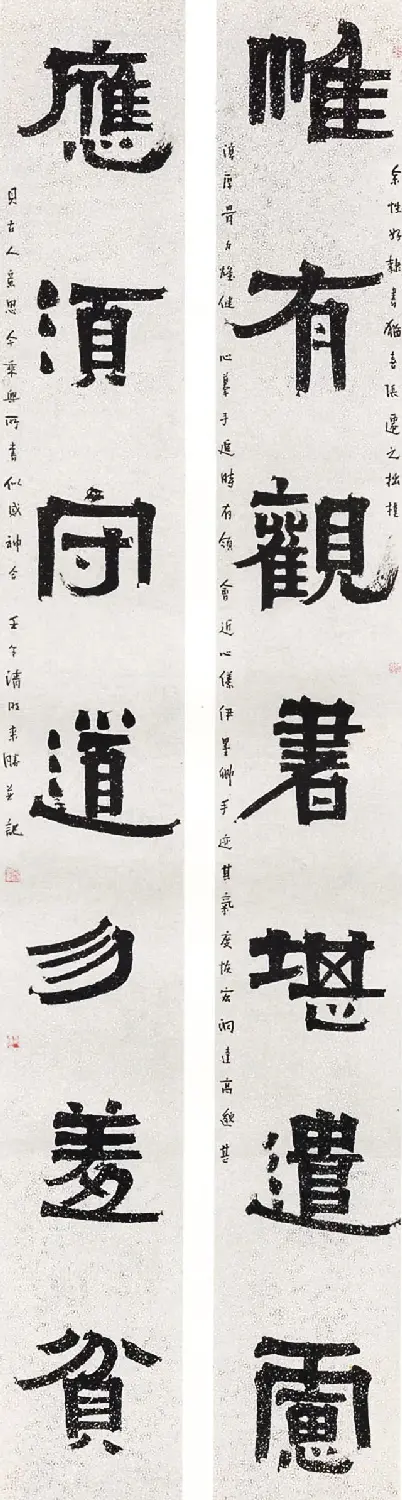 余性好隸書獨喜張遷之拙樸
惟有觀書堪遣慮
渾厚骨力雄健心摹手追時有領會近心儀伊墨卿手迹其氣度恢宏洞達高邈甚
應須守道勿羞貧
具古人意思今乘興所書似感神合 壬午清明來勝並記